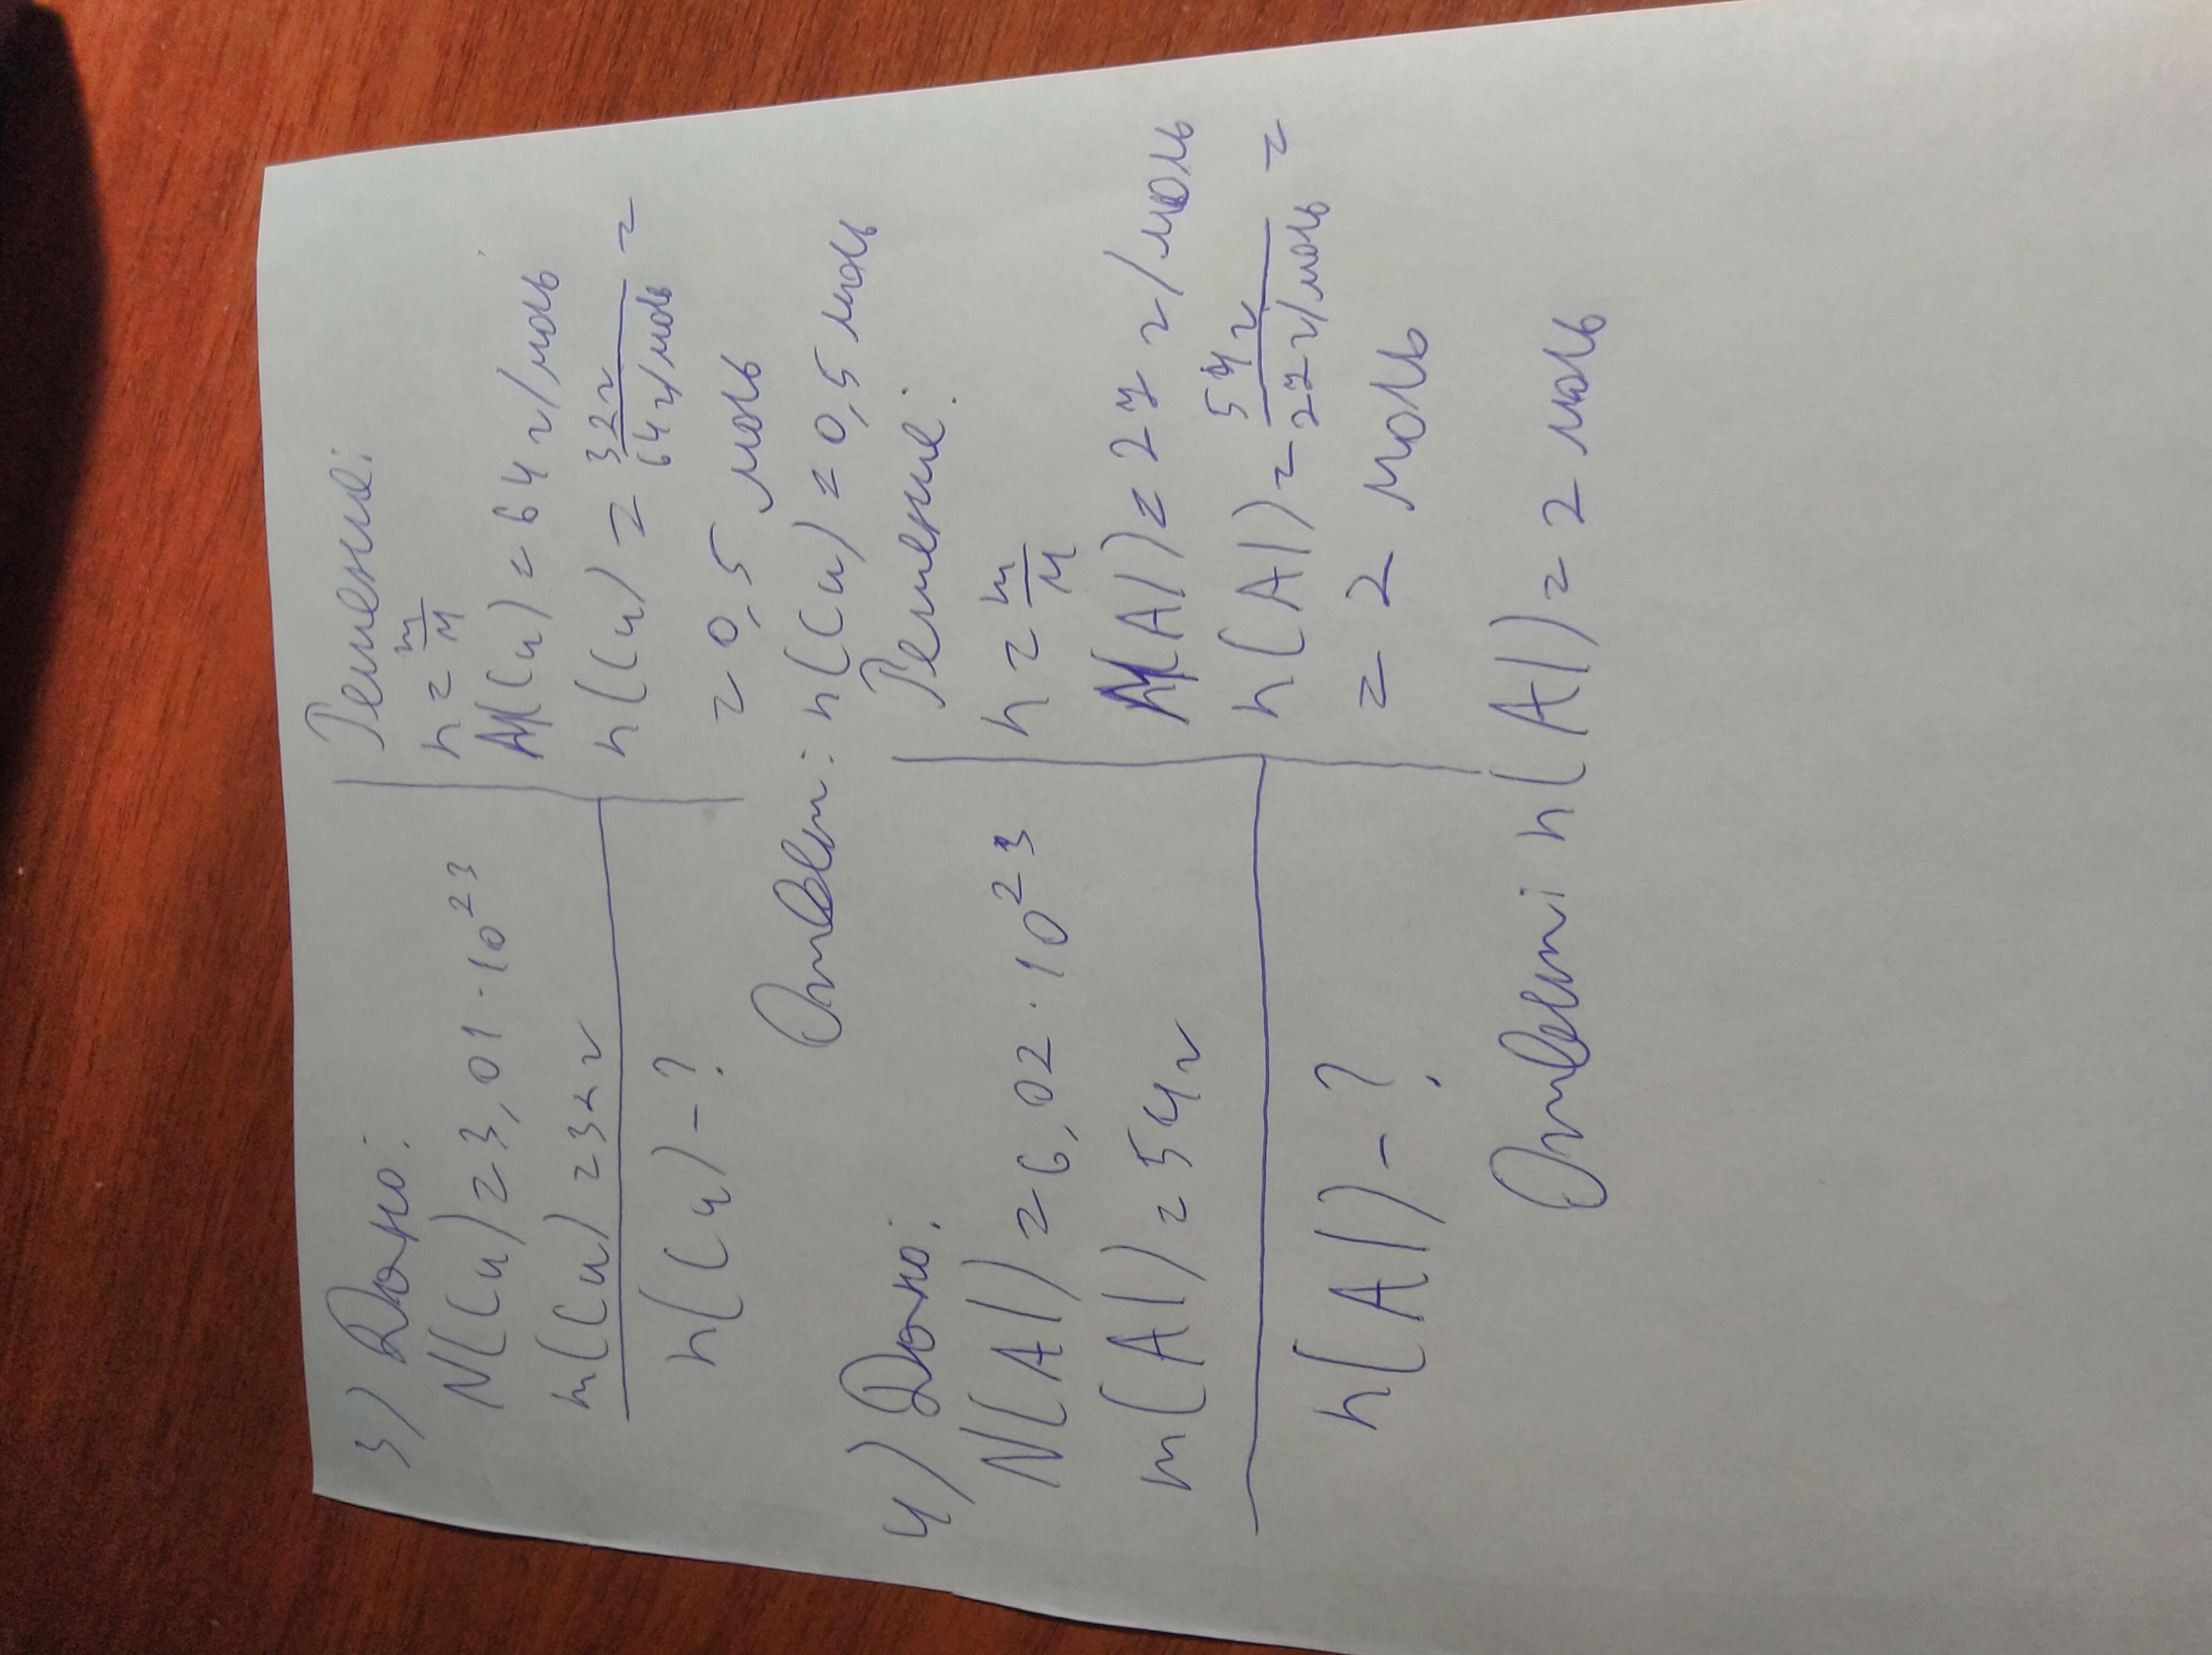 3) Дано:
N(Cu) = 3,01 · 10²³
m(Cu) = 32 г
n(Cu) - ?
Решение:
n = m/M
M(Cu) = 64 г/моль
n(Cu) = 32 г / 64 г/моль =
= 0,5 моль
Ответ: n(Cu) = 0,5 моль
4) Дано:
N(Al) = 6,02 · 10²³
m(Al) = 54 г
n(Al) - ?
Решение:
n = m/M
M(Al) = 27 г/моль
n(Al) = 54 г / 27 г/моль =
= 2 моль
Ответ: n(Al) = 2 моль